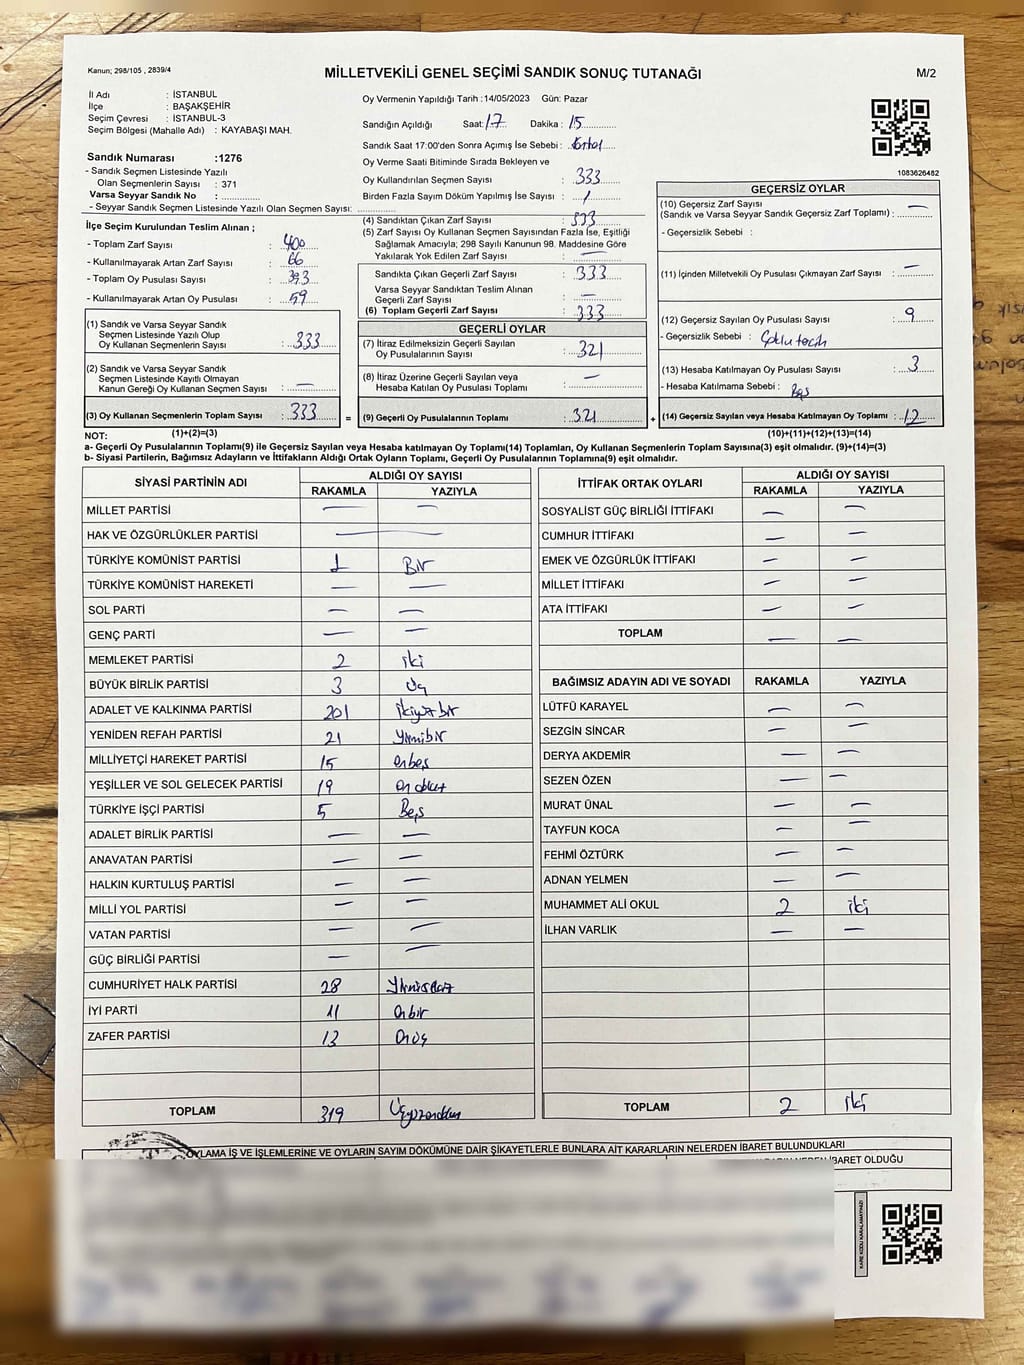 Kanun; 298/105 , 2839/4
MİLLETVEKİLİ GENEL SEÇİMİ SANDIK SONUÇ TUTANAĞI
M/2
İl Adı : İSTANBUL
İlçe : BAŞAKŞEHİR
Seçim Çevresi : İSTANBUL-3
Seçim Bölgesi (Mahalle Adı) : KAYABAŞI MAH.
Sandık Numarası :1276
- Sandık Seçmen Listesinde Yazılı
Olan Seçmenlerin Sayısı : 371
Varsa Seyyar Sandık No :
- Seyyar Sandık Seçmen Listesinde Yazılı Olan Seçmen Sayısı:
İlçe Seçim Kurulundan Teslim Alınan ;
- Toplam Zarf Sayısı : 400
- Kullanılmayarak Artan Zarf Sayısı : 66
- Toplam Oy Pusulası : 393
- Kullanılmayarak Artan Oy Pusulası : 59
(1) Sandık ve Varsa Seyyar Sandık
Seçmen Listesinde Yazılı Olup
Oy Kullanan Seçmenlerin Sayısı : 333
(2) Sandık ve Varsa Seyyar Sandık
Seçmen Listesinde Kayıtlı Olmayan
Kanun Gereği Oy Kullanan Seçmen Sayısı : —
(3) Oy Kullanan Seçmenlerin Toplam Sayısı : 333
(1)+(2)=(3)
Oy Vermenin Yapıldığı Tarih :14/05/2023 Gün: Pazar
Sandığın Açıldığı Saat: 17 Dakika : 15
Sandık Saat 17:00'den Sonra Açımış İse Sebebi :
Oy Verme Saati Bitiminde Sırada Bekleyen ve
Oy Kullandırılan Seçmen Sayısı : 333
Birden Fazla Sayım Döküm Yapılmış İse Sayısı : /
(4) Sandıktan Çıkan Zarf Sayısı : 333
(5) Zarf Sayısı Oy Kullanan Seçmen Sayısından Fazla İse, Eşitliği
Sağlamak Amacıyla; 298 Sayılı Kanunun 98. Maddesine Göre
Yakılarak Yok Edilen Zarf Sayısı : —
Sandıkta Çıkan Geçerli Zarf Sayısı : 333
Varsa Seyyar Sandıktan Teslim Alınan
Geçerli Zarf Sayısı : —
(6) Toplam Geçerli Zarf Sayısı : 333
GEÇERLİ OYLAR
(7) İtiraz Edilmeksizin Geçerli Sayılan
Oy Pusulalarının Sayısı : 321
(8) İtiraz Üzerine Geçerli Sayılan veya
Hesaba Katılan Oy Pusulası Toplamı : —
= (9) Geçerli Oy Pusulalarının Toplamı : 321
1083626482
GEÇERSİZ OYLAR
(10) Geçersiz Zarf Sayısı
(Sandık ve Varsa Seyyar Sandık Geçersiz Zarf Toplamı) : —
- Geçersizlik Sebebi :
(11) İçinden Milletvekili Oy Pusulası Çıkmayan Zarf Sayısı : —
(12) Geçersiz Sayılan Oy Pusulası Sayısı : 9
- Geçersizlik Sebebi : Çoklu tercih
(13) Hesaba Katılmayan Oy Pusulası Sayısı : 3
- Hesaba Katılmama Sebebi : Boş
+ (14) Geçersiz Sayılan veya Hesaba Katılmayan Oy Toplamı : 12
(10)+(11)+(12)+(13)=(14)
NOT:
a- Geçerli Oy Pusulalarının Toplamı(9) ile Geçersiz Sayılan veya Hesaba katılmayan Oy Toplamı(14) Toplamları, Oy Kullanan Seçmenlerin Toplam Sayısına(3) eşit olmalıdır. (9)+(14)=(3)
b- Siyasi Partilerin, Bağımsız Adayların ve İttifakların Aldığı Ortak Oyların Toplamı, Geçerli Oy Pusulalarının Toplamına(9) eşit olmalıdır.
SİYASİ PARTİNİN ADI ALDIĞI OY SAYISI
RAKAMLA YAZIYLA
MİLLET PARTİSİ — —
HAK VE ÖZGÜRLÜKLER PARTİSİ —
TÜRKİYE KOMÜNİST PARTİSİ 1 Bir
TÜRKİYE KOMÜNİST HAREKETİ — —
SOL PARTİ — —
GENÇ PARTİ — —
MEMLEKET PARTİSİ 2 iki
BÜYÜK BİRLİK PARTİSİ 3 Üç
ADALET VE KALKINMA PARTİSİ 201 ikiyüzbir
YENİDEN REFAH PARTİSİ 21 Yirmibir
MİLLİYETÇİ HAREKET PARTİSİ 15 onbeş
YEŞİLLER VE SOL GELECEK PARTİSİ 19 ondokuz
TÜRKİYE İŞÇİ PARTİSİ 5 Beş
ADALET BİRLİK PARTİSİ — —
ANAVATAN PARTİSİ — —
HALKIN KURTULUŞ PARTİSİ — —
MİLLİ YOL PARTİSİ — —
VATAN PARTİSİ — —
GÜÇ BİRLİĞİ PARTİSİ — —
CUMHURİYET HALK PARTİSİ 28 Yirmisekiz
İYİ PARTİ 11 onbir
ZAFER PARTİSİ 13 Onüç
TOPLAM 319 Üçyüzondokuz
İTTİFAK ORTAK OYLARI ALDIĞI OY SAYISI
RAKAMLA YAZIYLA
SOSYALİST GÜÇ BİRLİĞİ İTTİFAKI — —
CUMHUR İTTİFAKI — —
EMEK VE ÖZGÜRLÜK İTTİFAKI — —
MİLLET İTTİFAKI — —
ATA İTTİFAKI — —
TOPLAM — —
BAĞIMSIZ ADAYIN ADI VE SOYADI RAKAMLA YAZIYLA
LÜTFÜ KARAYEL — —
SEZGİN SİNCAR —
DERYA AKDEMİR — —
SEZEN ÖZEN — —
MURAT ÜNAL — —
TAYFUN KOCA — —
FEHMİ ÖZTÜRK — —
ADNAN YELMEN — —
MUHAMMET ALİ OKUL 2 iki
İLHAN VARLIK — —
TOPLAM 2 iki
OYLAMA İŞ VE İŞLEMLERİNE VE OYLARIN SAYIM DÖKÜMÜNE DAİR ŞİKAYETLERLE BUNLARA AİT KARARLARIN NELERDEN İBARET BULUNDUKLARI
NEDEN İBARET OLDUĞU
KARE KODU KARALAMAYINIZ!